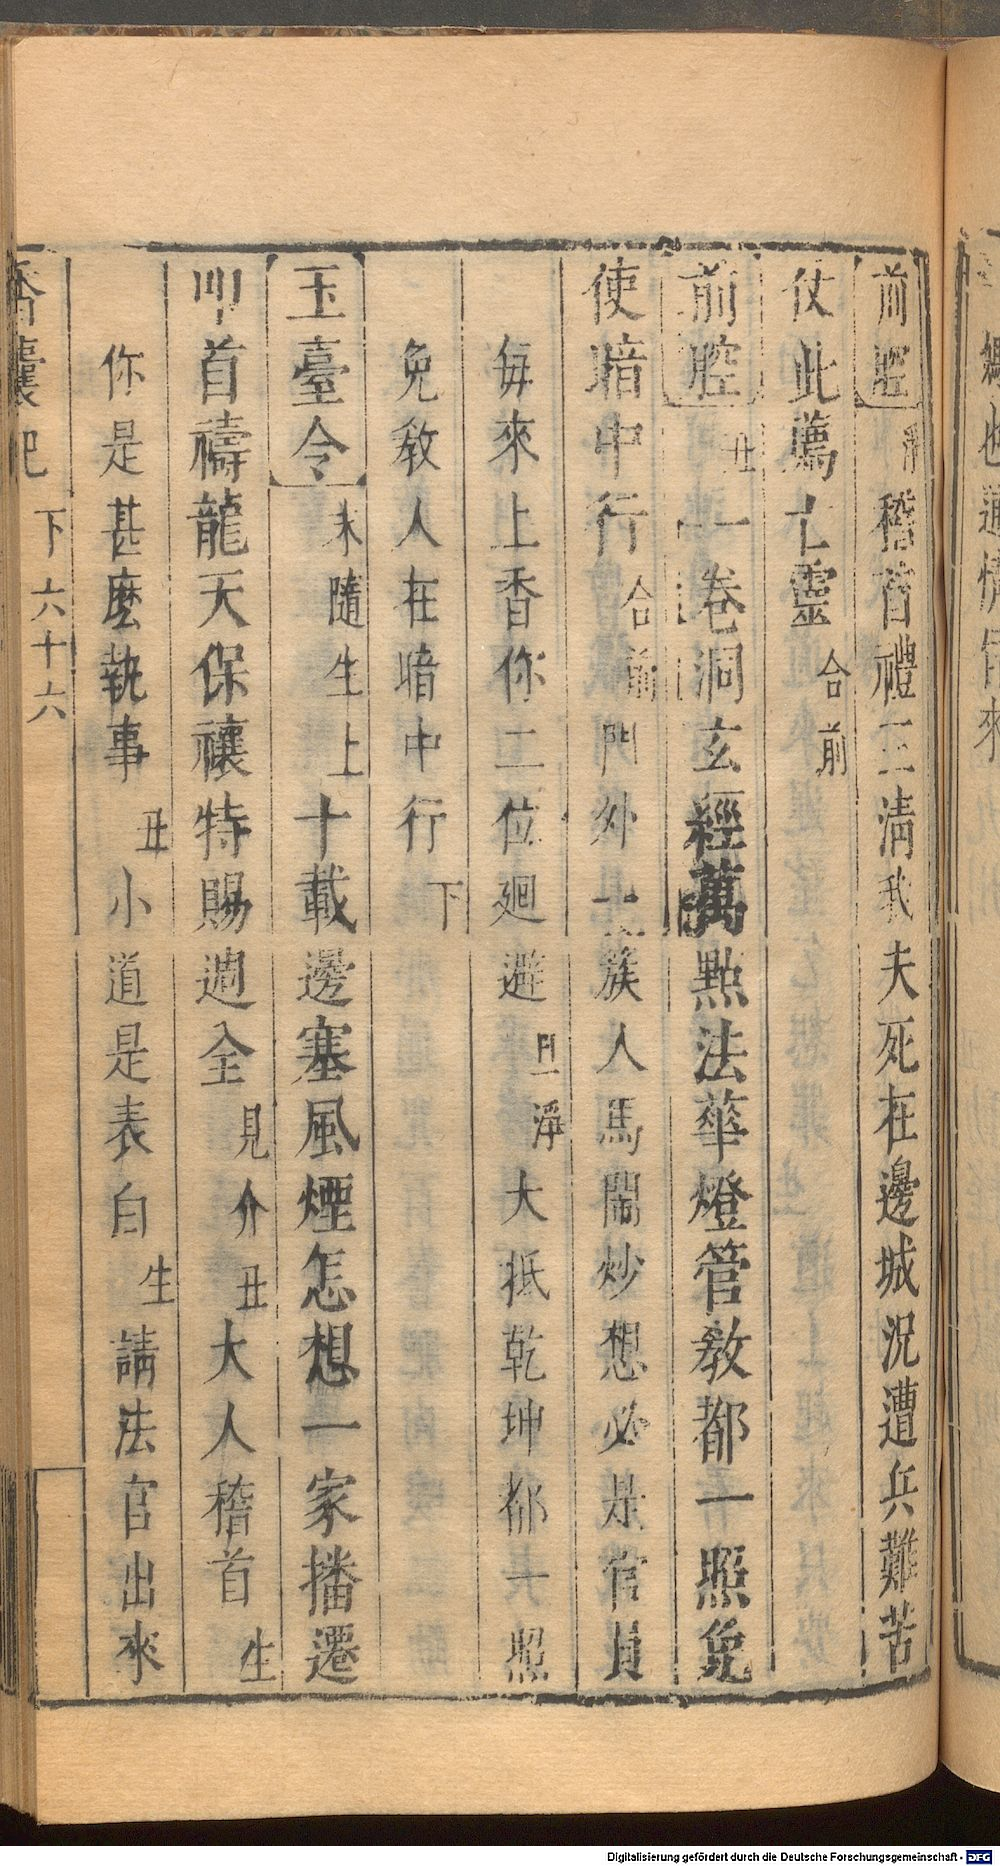 前腔 淨 稽首禮三清我夫死在邊城況遭兵難苦
仗此薦亡靈 合前
前腔 丑 一卷洞玄經萬點法華燈管敎都一照免
使暗中行 合前 門外一簇人馬鬧炒想必是官員
每來上香你二位廻避 淨 大抵乾坤都一照
免敎人在暗中行 下
玉臺令 末隨生上 十載邊塞風煙怎想一家播遷
叩首禱龍天保禳特賜週全 見介 丑 大人稽首 生
你是甚麽執事 丑 小道是表白 生 請法官出來
香囊記 下 六十六
Digitalisierung gefördert durch die Deutsche Forschungsgemeinschaft - DFG